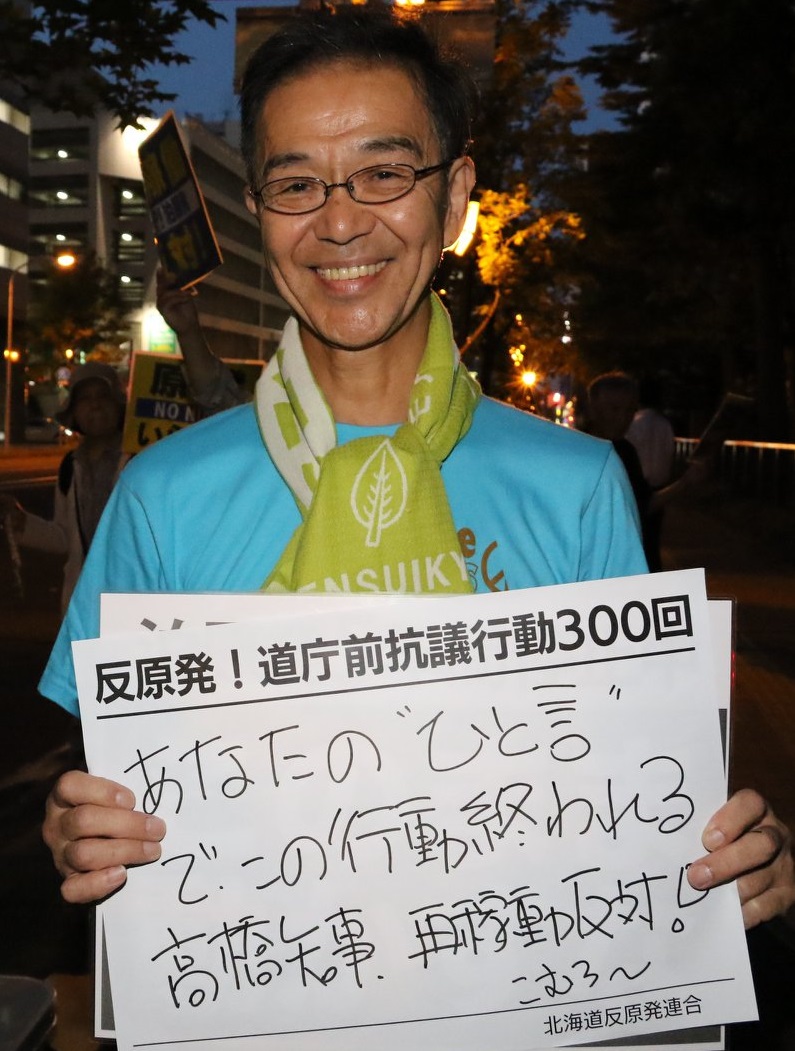 原
NO N
い
ENSUIKY
反原発！道庁前抗議行動300回
あなたの“ひと言”
で、この行動終われる
高橋知事、再稼動反対！
こむろ〜
北海道反原発連合